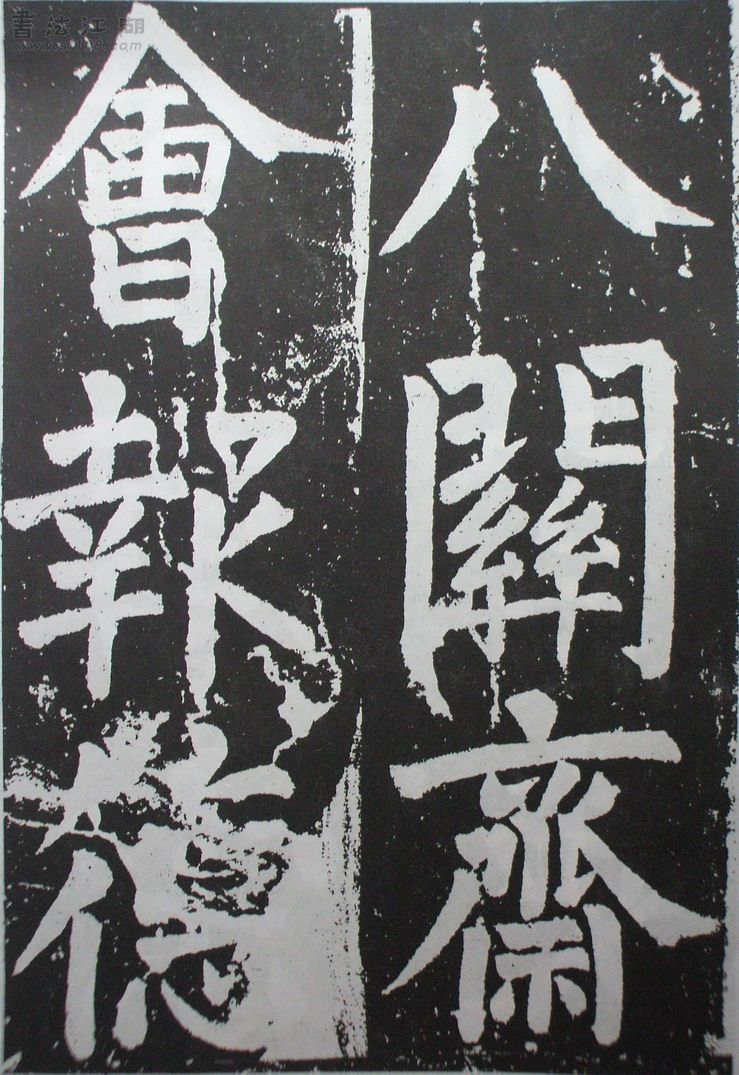 八關齋
會報德
書法江湖
www.sf108.com